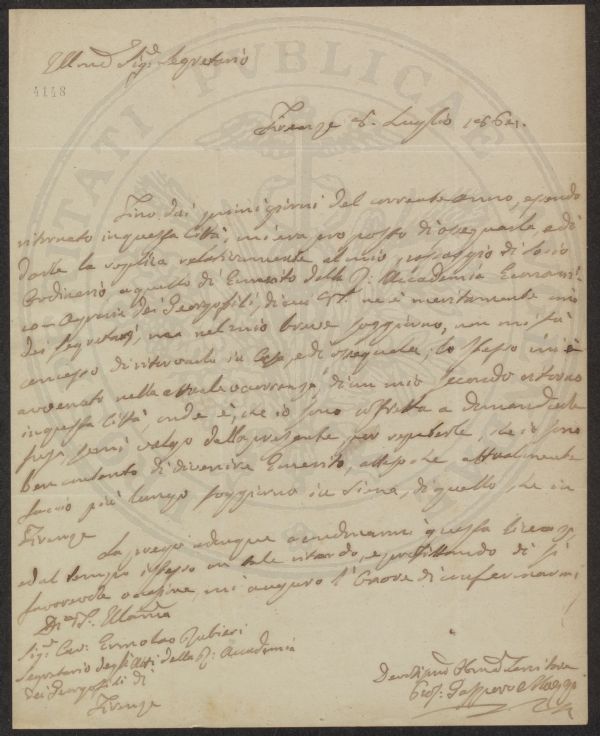 Ill.mo Sig.e Segretario
4148
Firenze 6. Luglio 1861.
Fino dai primi giorni del corrente anno, essendo
ritornato in questa Città, mi era proposto di ossequiarla e di
darle la replica relativamente al mio passaggio di Socio
Ordinario a quello di Emerito della R. Accademia Economi-
co-Agraria dei Georgofili, di cui V.S. ne è meritamente uno
dei Segretari, ma nel mio breve soggiorno, non mi fù
concesso di ritrovarla in Casa, e di ossequiarla; lo stesso mi è
avvenuto nella attuale occorrenza, di un mio secondo ritorno
in questa Città, onde è, che io sono a domandarle
scusa, se mi valgo della presente, per repeterle, che io sono
ben contento di divenire Emerito, attesoche attualmente
faccio più lungo soggiorno in Siena, di quello che in
Firenze
La prego adunque a condonarmi questa
ed al tempo istesso un tale ritardo, e profittando di sì
favorevole occasione, mi auguro l'Onore di confermarmi
Di V.S. Ill.ma
Sig.e Cav. Ermolao Rubieri
Segretario degli Atti della R. Accademia
dei Georgofili di
Firenze
Dev.mo Servitore
Gaspero